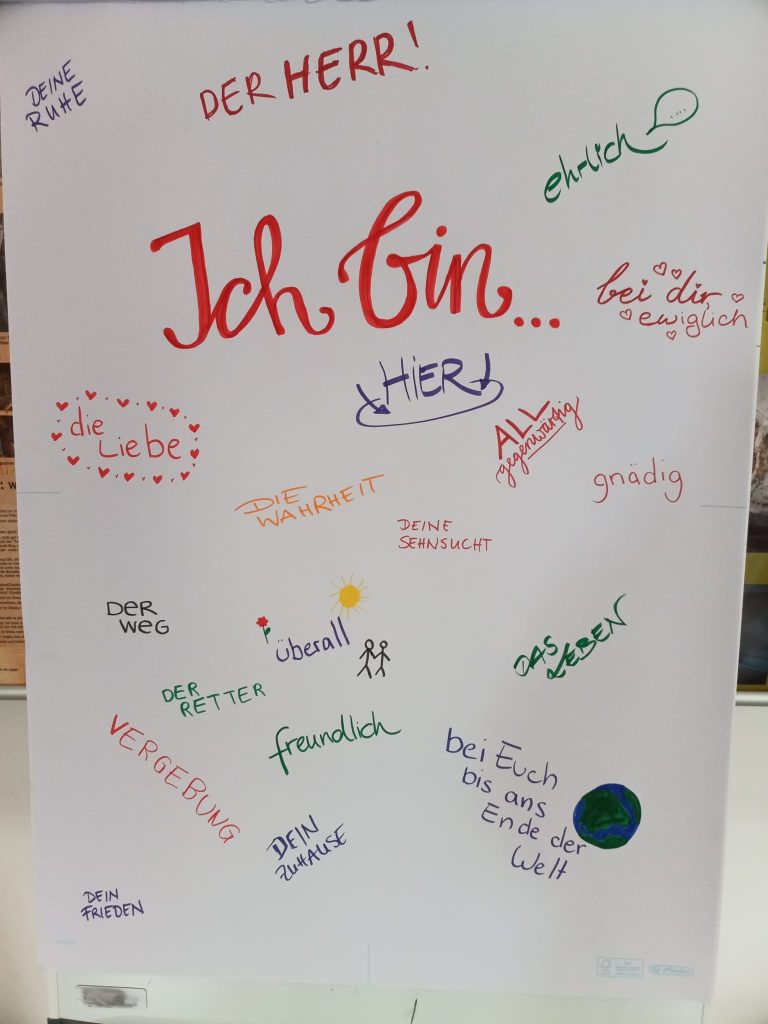 DEINE
RUHE
DER HERR!
ehrlich
....
Ich bin...
bei dir,
ewiglich
HIER
die
Liebe
ALL
gegenwärtig
gnädig
DIE
WAHRHEIT
DEINE
SEHNSUCHT
DER
WEG
überall
DAS
LEBEN
DER
RETTER
VERGEBUNG
freundlich
bei Euch
bis ans
Ende der
Welt
DEIN
ZUHAUSE
DEIN
FRIEDEN